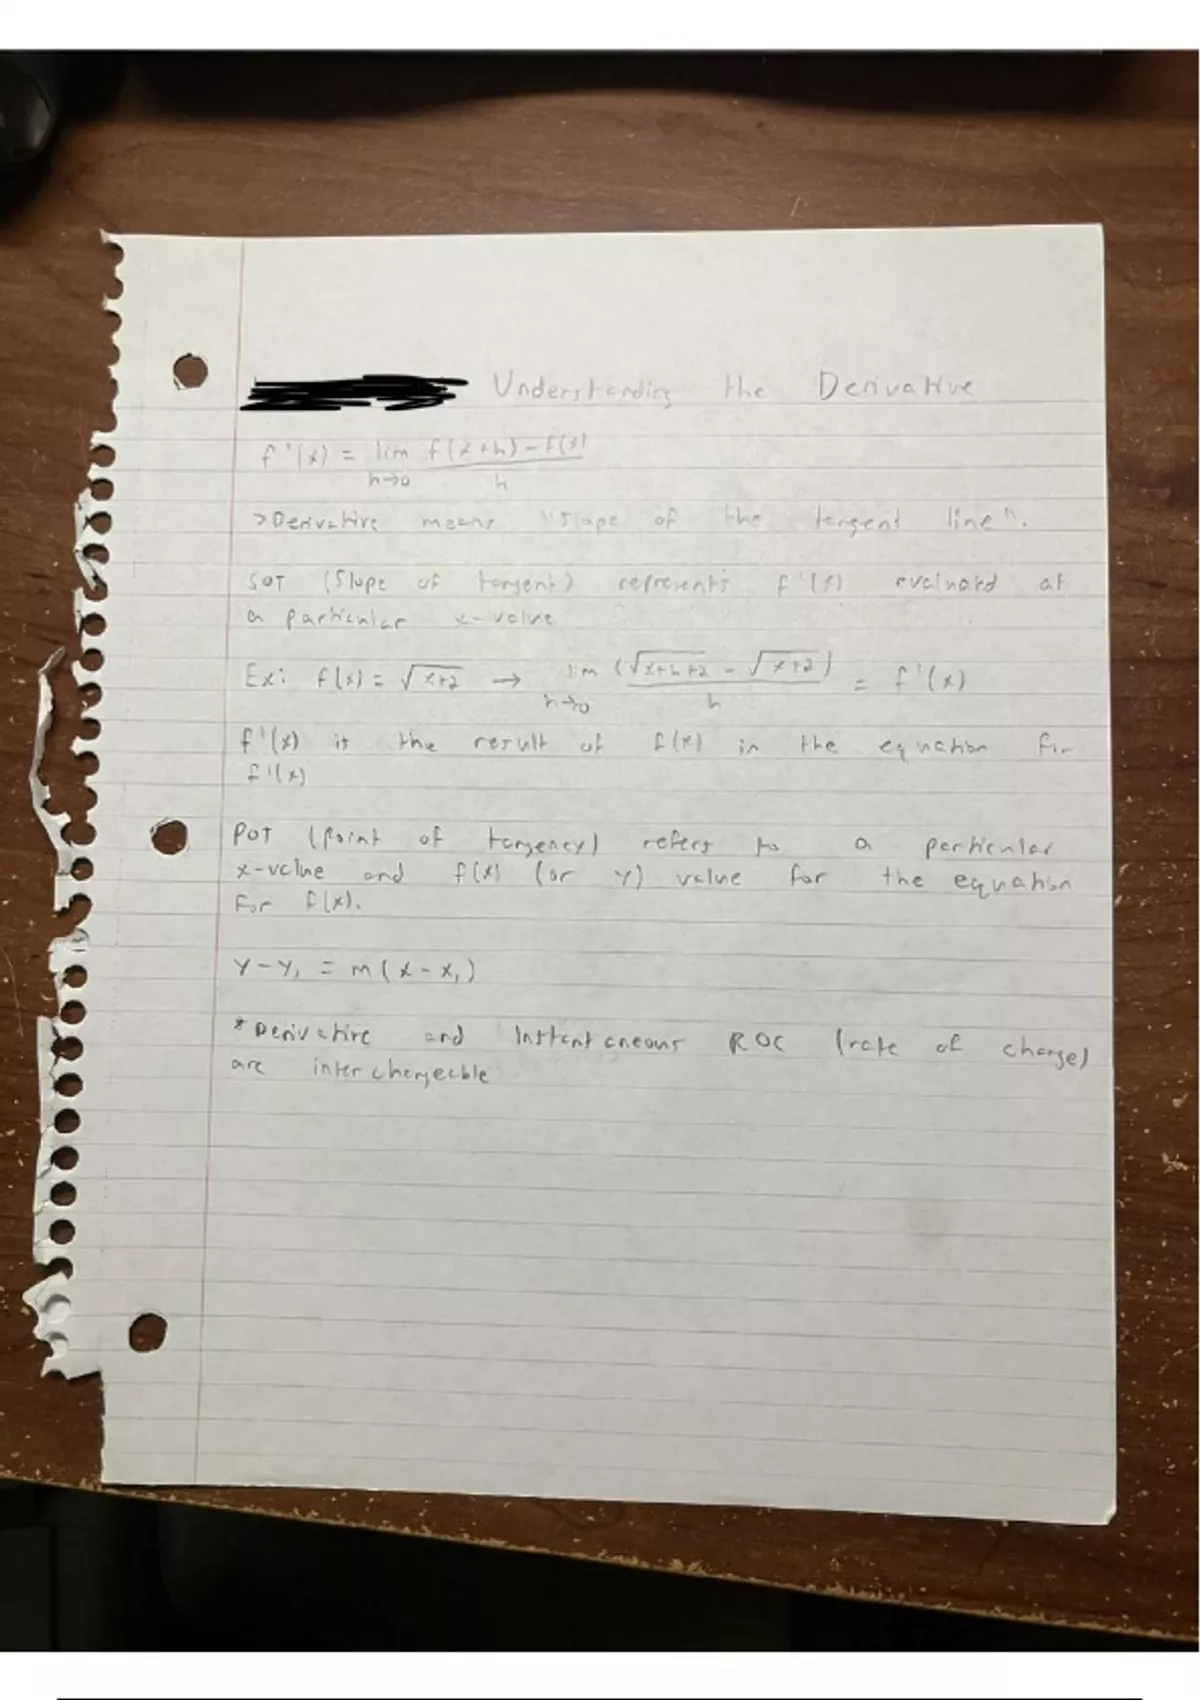 Understanding the Derivative
f'(x) = lim f(x+h)-f(x)
h→0 h
>Derivative means "slope of the tangent line".
SOT (Slope of tangent) represents f'(x) evaluated at
a particular x-value
Ex: f(x) = √x+2 → lim (√x+h+2 - √x+2) = f'(x)
h→0 h
f'(x) is the result of f(x) in the equation for
f'(x)
POT (point of tangency) refers to a particular
x-value and f(x) (or y) value for the equation
for f(x).
y-y₁ = m(x-x₁)
*Derivative and Instantaneous ROC (rate of change)
are interchangeable